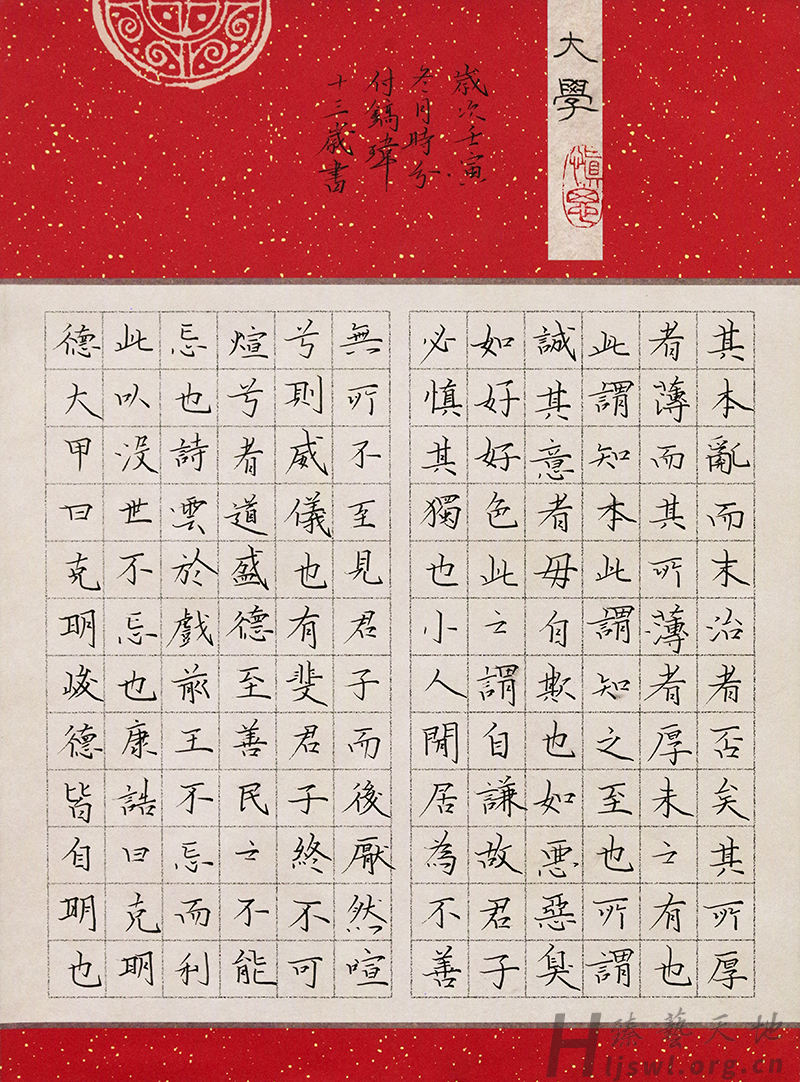 大學
慎思
歲次壬寅
冬月時兮
付鎬瑋
十三歲書
其本亂而末治者否矣其所厚
者薄而其所薄者厚未之有也
此謂知本此謂知之至也所謂
誠其意者毋自欺也如悪惡臭
如好好色此之謂自謙故君子
必慎其獨也小人閒居為不善
無所不至見君子而後厭然喧
兮則威儀也有斐君子終不可
煊兮者道盛德至善民之不能
忘也詩雲於戲前王不忘而利
此以没世不忘也康誥曰克明
德大甲曰克明峻德皆自明也
藝天地
Hljswl.org.cn